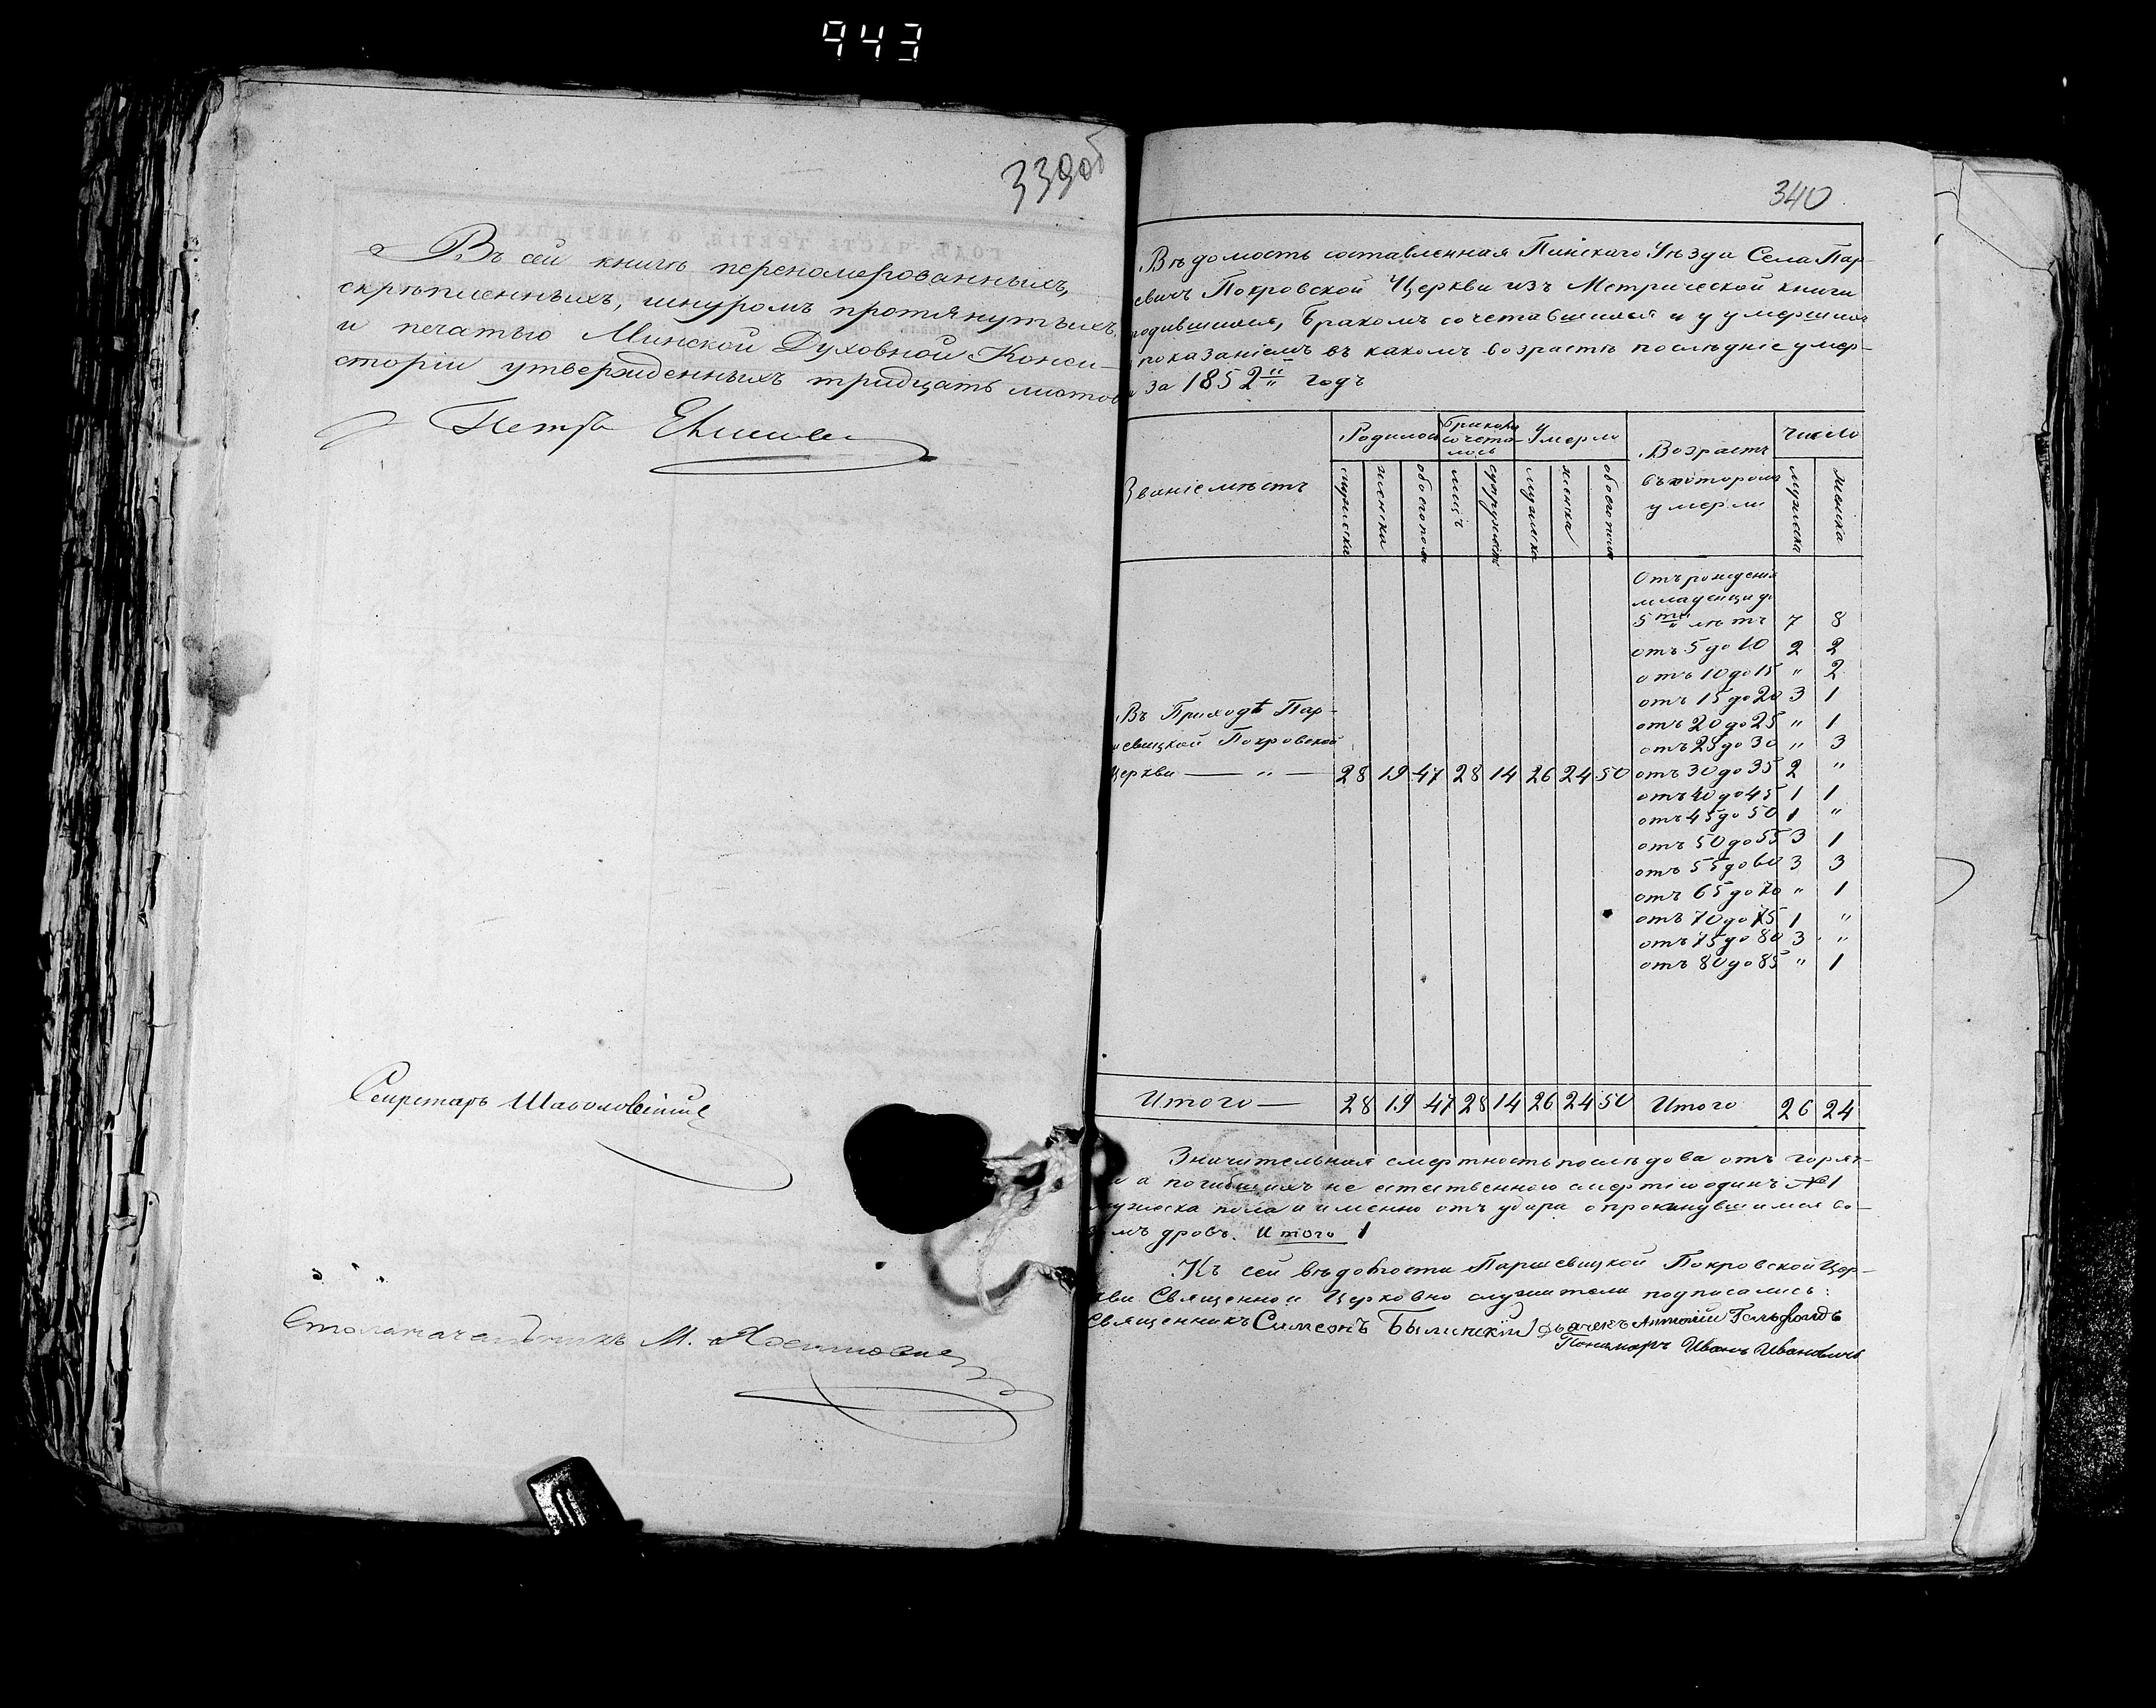 943
339об
Въ сей книгѣ перономерованныхъ,
скрѣпленныхъ, шнуромъ протянутыхъ,
и печатью Минской Духовной Конси-
сторіи утвержденныхъ тридцать листовъ
Петръ
Секретарь
Столоначальникъ М.
340
Вѣдомость составленная Пинскаго Уѣзда Села Пар-
евичъ Покровской Церкви изъ Метрической книги
родившихся, бракомъ сочетавшихся и у умершихъ
показаніемъ въ какомъ возрастѣ послѣдніе умер-
и за 1852 годъ
Званіе мѣстъ
Родилось
Бракомъ сочета- лось
Умерло
Возрастъ въ которомъ умерли
Число
мужеска женска обоего пола лицъ супружествъ мужеска женска обоего пола мужеска женска
Отъ рожденія
младенци до
5ти лѣтъ 7 8
отъ 5 до 10 2 2
отъ 10 до 15 " 2
отъ 15 до 20 3 1
отъ 20 до 25 " 1
отъ 25 до 30 " 3
Въ Приходѣ Пар-
шевицкой Покровской
Церкви — " — 28 19 47 28 14 26 24 50 отъ 30 до 35 2 "
отъ 40 до 45 1 1
отъ 45 до 50 1 "
отъ 50 до 55 3 1
отъ 55 до 60 3 3
отъ 65 до 70 " 1
отъ 70 до 75 1 "
отъ 75 до 80 3 "
отъ 80 до 85 " 1
Итого — 28 19 47 28 14 26 24 50 Итого 26 24
Значительная смертность послѣдова отъ горяч-
и а погибшихъ не естественною смертію одинъ №1
мужеска пола и именно отъ удара опрокинувшимся во-
мъ дровъ. Итого 1
Къ сей вѣдомости Паршевицкой Покровской Цер-
кви Священно и Церковно служители подписались:
Священникъ Симеонъ Былинскій Дьячекъ Антоній Гальфондъ
Пономарь Иванъ Ивановичъ